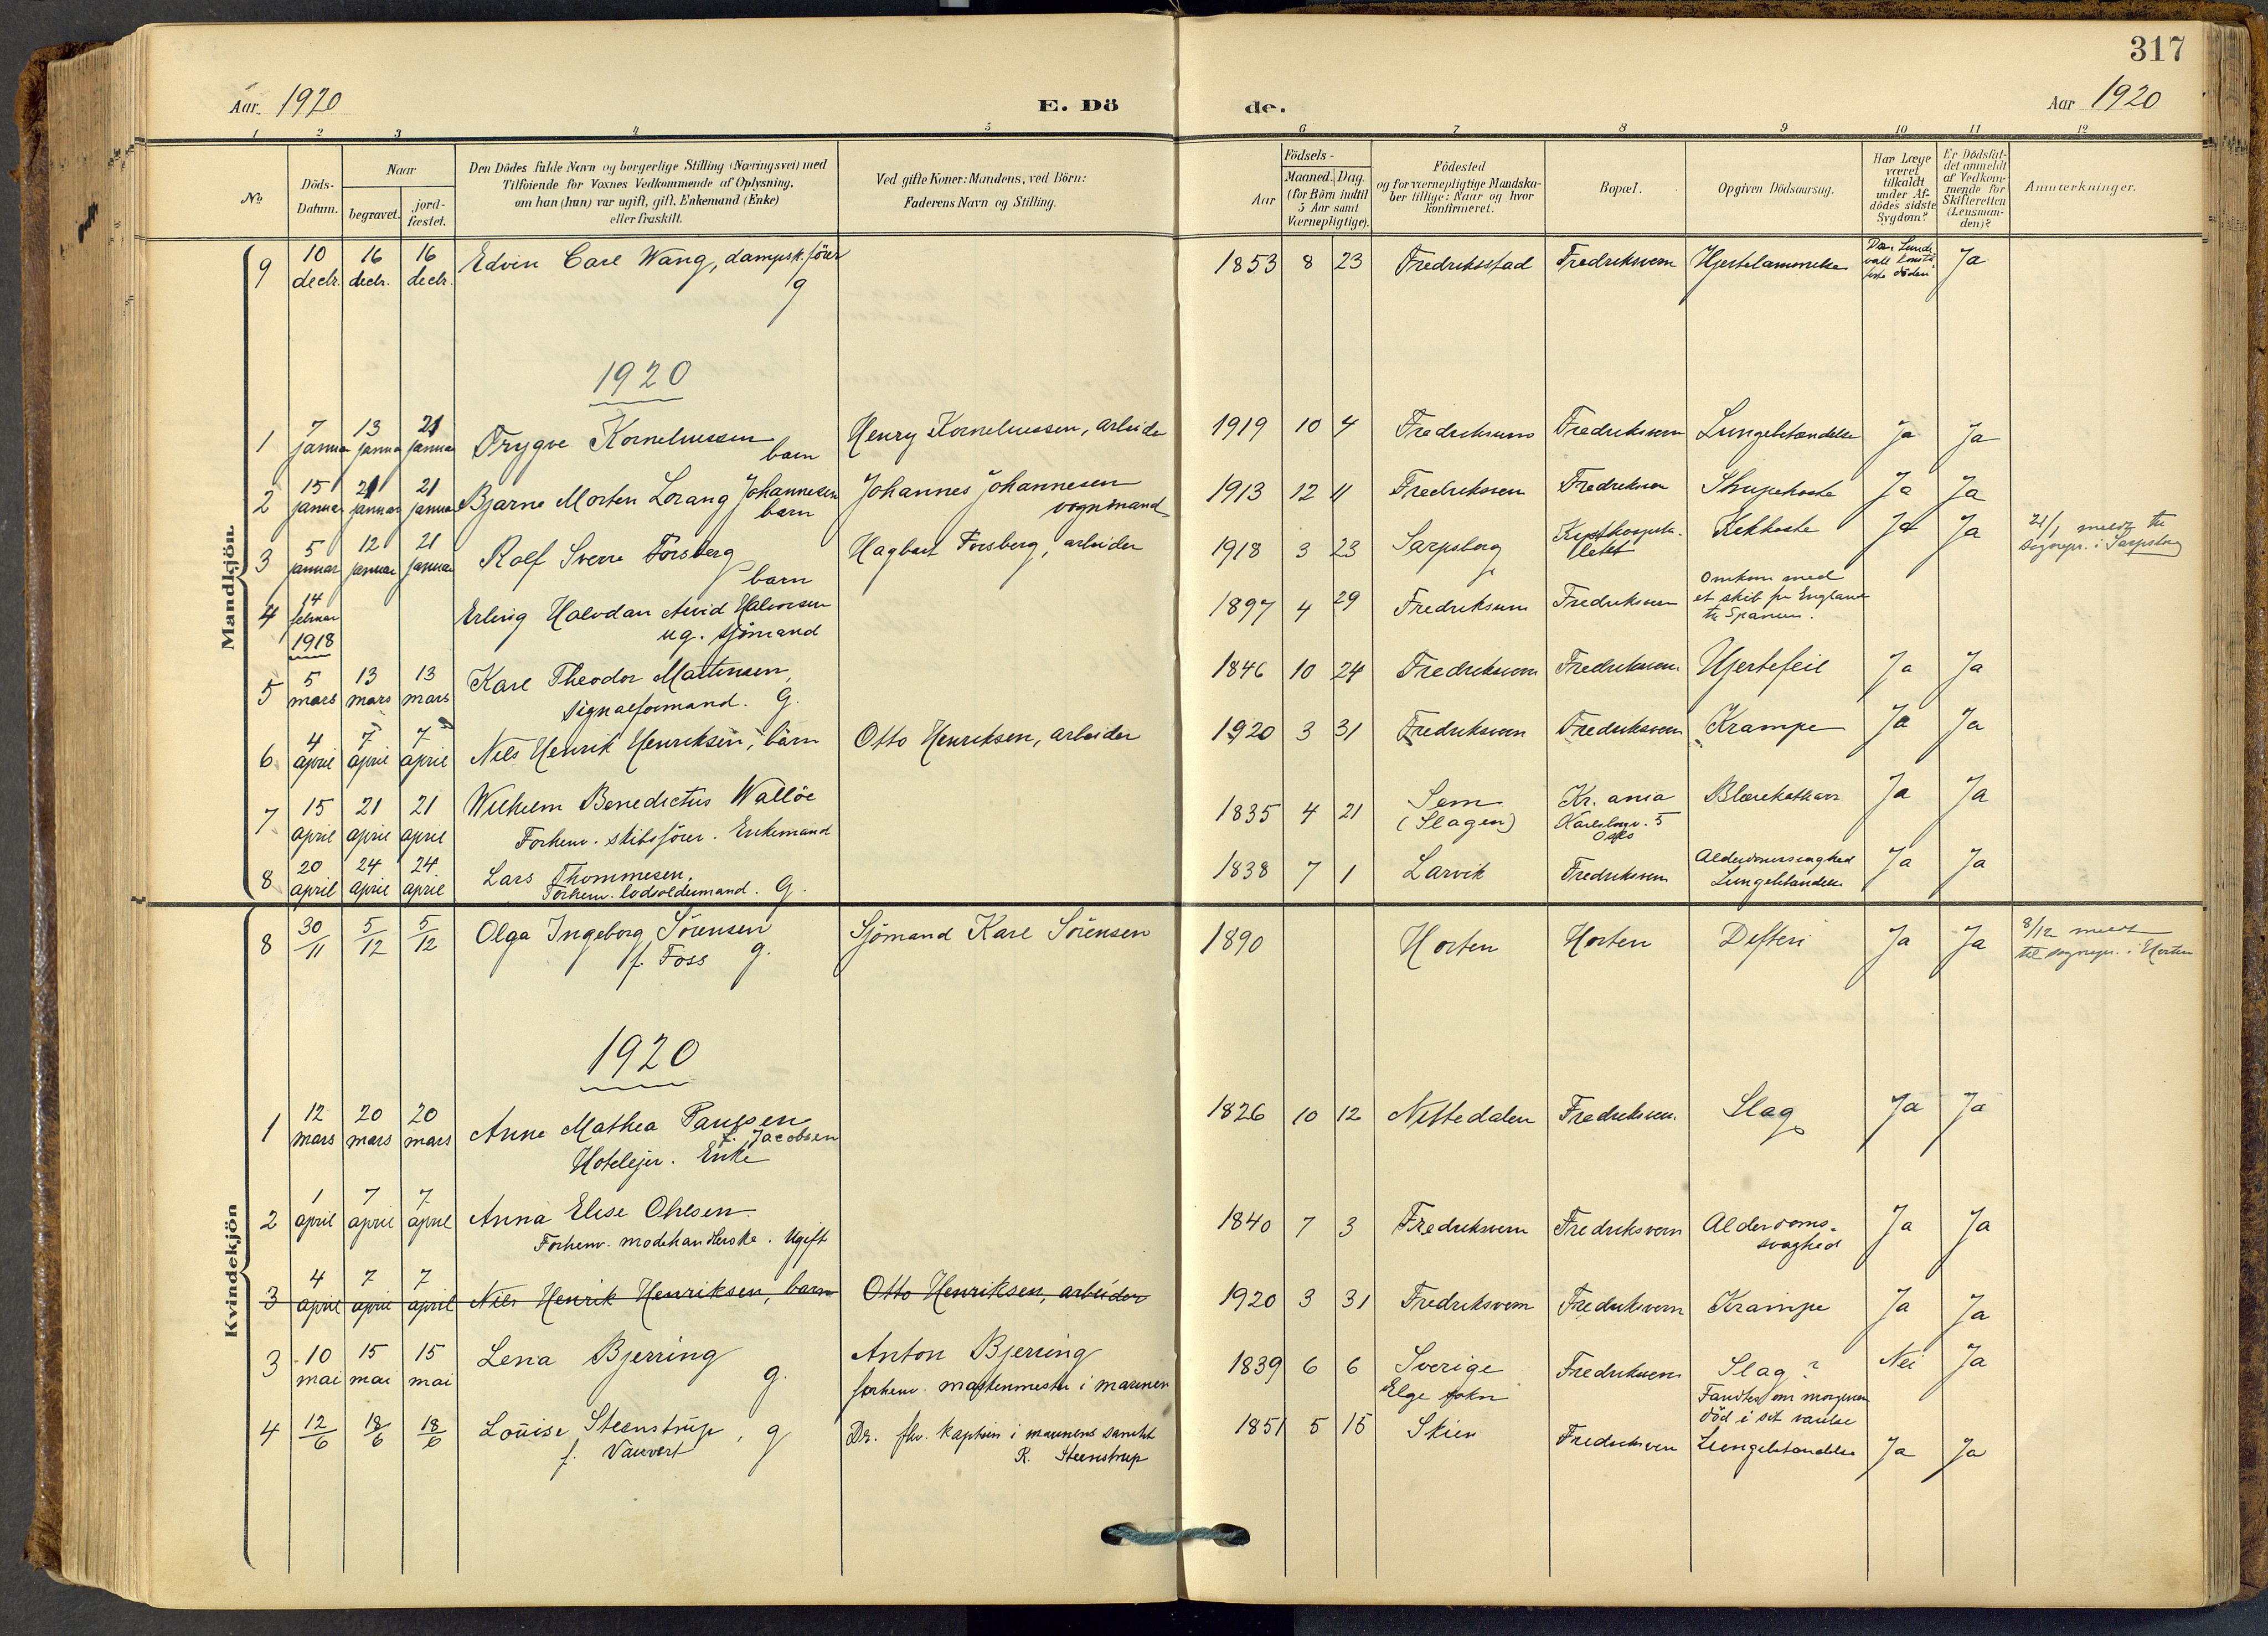 317
Aar. 1920
E. Dö
de.
Aar 1920
1 2 3 4 5 6 7 8 9 10 11 12
No.
Döds-Datum.
Naar
begravet.
jord-fæstet.
Den Dödes fulde Navn og borgerlige Stilling (Næringsvei) med
Tilföiende for Voxnes Vedkommende af Oplysning,
om han (hun) var ugift, gift, Enkemand (Enke)
eller fraskilt.
Ved gifte Koner: Mandens, ved Börn:
Faderens Navn og Stilling.
Födsels-
Aar
Maaned. Dag.
(for Börn indtil
5 Aar samt
Værnepligtige).
Födested
og for værnepligtige Mandska-
ber tillige: Naar og hvor
konfirmeret.
Bopæl.
Opgiven Dödsaarsag.
Har Læge
været
tilkaldt
under Af-
dödes sidste
Sygdom?
Er Dödsfal-
det anmeldt
af Vedkom-
mende for
Skifteretten
(Lensman-
den)?
Anmærkninger.
Mandkjön.
9 10 decbr. 16 decbr. 16 decbr. Edvin Carl Wang, dampsk.förer g 1853 8 23 Fredriksstad Fredriksvern Hjertelammelse Ja
1920
1 7 januar 13 januar 21 januar Trygve Korneliussen barn Henry Korneliussen, arbeider 1919 10 4 Fredriksvern Fredriksvern Lungebetændelse Ja Ja
2 15 januar 21 januar 21 januar Bjarne Morten Lorang Johannesen barn Johannes Johannesen vognmand 1913 12 11 Fredriksvern Fredriksvern Strupehoste Ja Ja
3 5 januar 12 januar 21 januar Rolf Sverre Forsberg barn Hagbart Forsberg, arbeider 1918 3 23 Sarpsborg Kysthospitalet Kikhoste Ja Ja 21/1 meldt til sognepr. i Sarpsborg
4 14 februar 1918 Erling Halvdan Arvid Halvorsen ug. sjömand 1897 4 29 Fredriksvern Fredriksvern Omkom med et skib fra England til Spanien.
5 5 mars 13 mars 13 mars Karl Theodor Mathisen, signalformand. G. 1846 10 24 Fredriksvern Fredriksvern Hjertefeil Ja Ja
6 4 april 7 april 7 april Nils Henrik Henriksen, barn Otto Henriksen, arbeider 1920 3 31 Fredriksvern Fredriksvern Krampe Ja Ja
7 15 april 21 april 21 april Wilhelm Benedictus Wallöe Forhenv. skibsförer. Enkemand 1835 4 21 Sem (Slagen) Kr.ania 5 Oslo Blærekatharr Ja Ja
8 20 april 24 april 24 april Lars Thommesen, Forhenv. lodsoldermand. G. 1838 7 1 Larvik Fredriksvern Alderdomssvaghed Lungebetændelse Ja Ja
Kvindekjön
8 30/11 5/12 5/12 Olga Ingeborg Sörensen f. Foss g. Sjömand Karl Sörensen 1890 Horten Horten Difteri Ja Ja 8/12 meldt til sognepr. i Horten
1920
1 12 mars 20 mars 20 mars Anne Mathea Paulsen f. Jacobsen Hoteleier. Enke 1826 10 12 Nittedalen Fredriksvern. Slag Ja Ja
2 1 april 7 april 7 april Anna Elise Ohlsen. Forhenv. modehandlerske. Ugift 1840 7 3 Fredriksvern Fredriksvern Alderdoms-svaghed Ja Ja
3 4 april 7 april 7 april Nils Henrik Henriksen, barn Otto Henriksen, arbeider 1920 3 31 Fredriksvern Fredriksvern Krampe Ja Ja
3 10 mai 15 mai 15 mai Lena Bjerring g. Anton Bjerring forhenv. maskinmester i marinen 1839 6 6 Sverige Elge sokn Fredriksvern Slag? Fandtes om morgenen död i sit værelse Nei Ja
4 12/6 18/6 18/6 Louise Steenstrup, g f. Vauvert Dr. fhv. kaptein i marinens sanitet R. Steenstrup 1851 5 15 Skien Fredriksvern Lungebetændelse Ja Ja